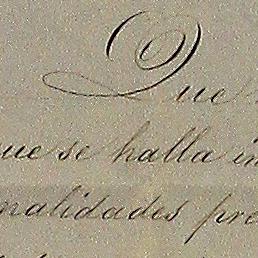 Que
que se halla in
nalidades pre